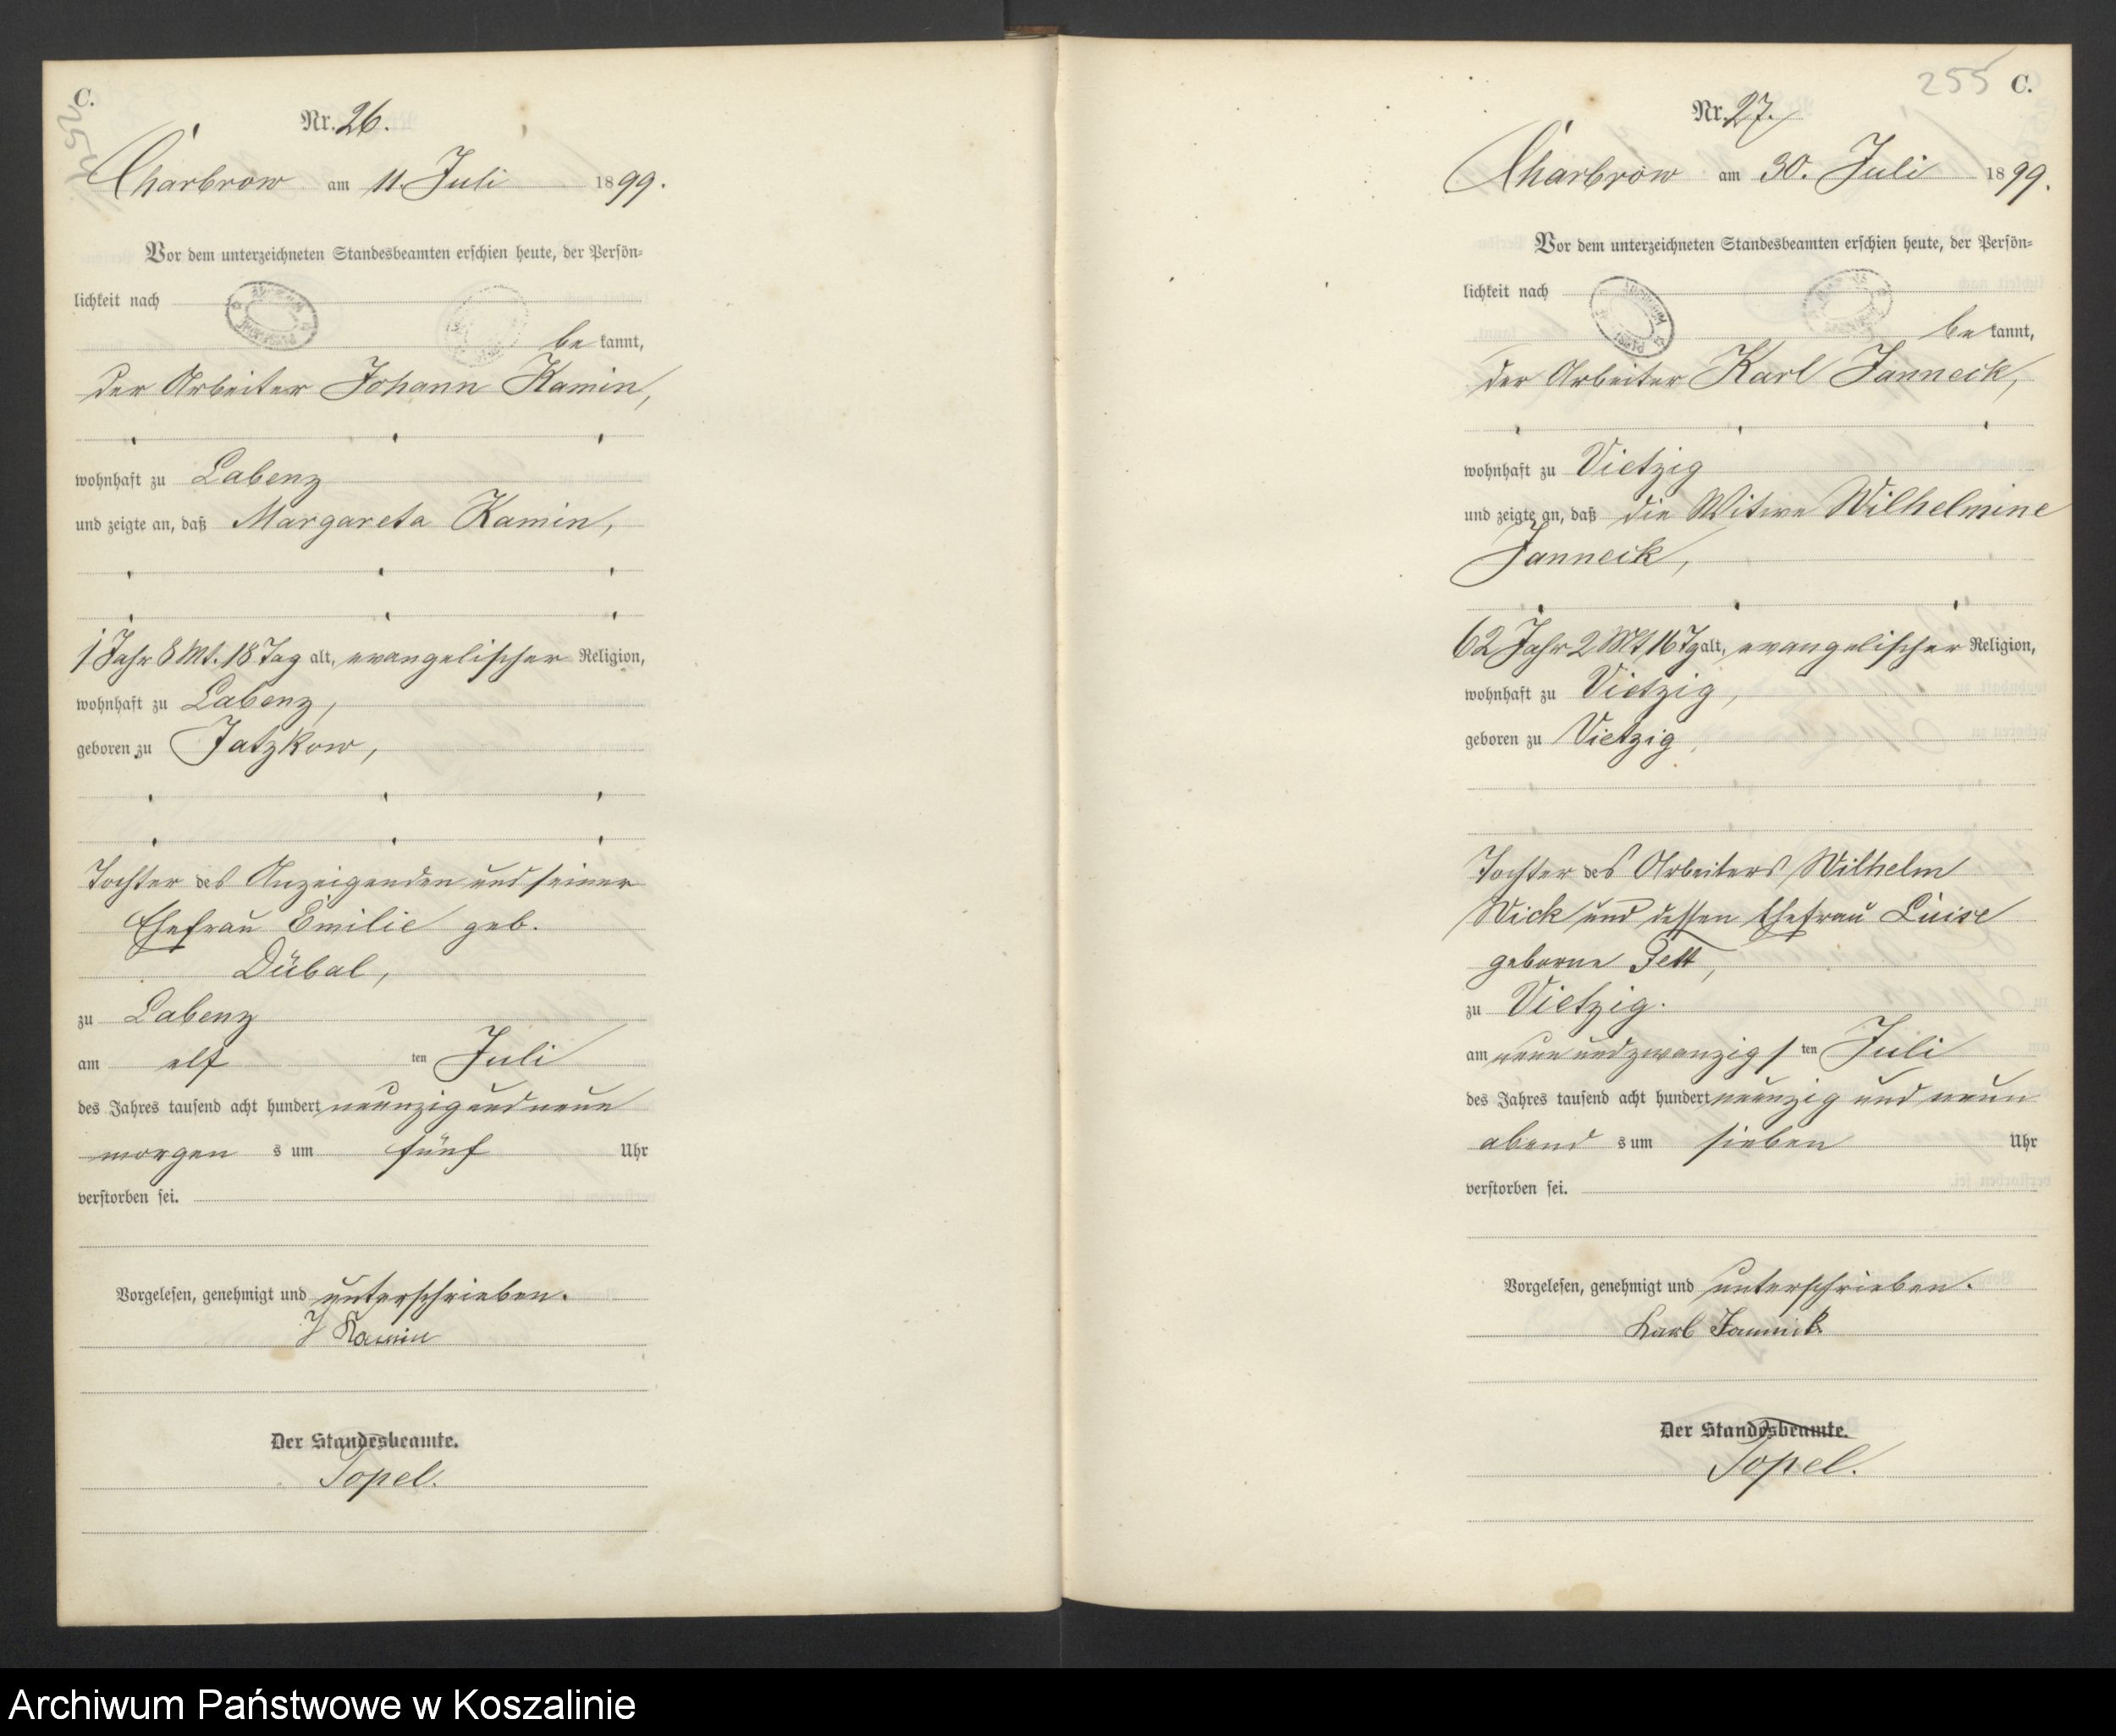 C.
Nr. 26.
Charbrow am 11. Juli 1899.
Vor dem unterzeichneten Standesbeamten erschien heute, der Persön-
lichkeit nach
bekannt,
der Arbeiter Johann Kamin,
wohnhaft zu Labenz
und zeigte an, daß Margareta Kamin,
1 Jahr 8 Mt. 18 Tag alt, evangelischer Religion,
wohnhaft zu Labenz,
geboren zu Jatzkow,
Tochter des Anzeigenden und seiner
Ehefrau Emilie geb.
Dübal,
zu Labenz
am elf ten Juli
des Jahres tausend acht hundert neunzig und neun
morgens um fünf Uhr
verstorben sei.
Vorgelesen, genehmigt und unterschrieben.
J Kamin
Der Standesbeamte.
Topel.
255 C.
Nr. 27.
Charbrow am 30. Juli 1899.
Vor dem unterzeichneten Standesbeamten erschien heute, der Persön-
lichkeit nach
bekannt,
der Arbeiter Karl Janneck,
wohnhaft zu Vietzig
und zeigte an, daß die Witwe Wilhelmine
Janneck,
62 Jahr 2 Mt 16 Tg alt, evangelischer Religion,
wohnhaft zu Vietzig,
geboren zu Vietzig,
Tochter des Arbeiters Wilhelm
Wick und dessen Ehefrau Luise
geborne Tett,
zu Vietzig.
am neun und zwanzigsten Juli
des Jahres tausend acht hundert neunzig und neun
abends um sieben Uhr
verstorben sei.
Vorgelesen, genehmigt und unterschrieben.
Karl Jannik
Der Standesbeamte.
Topel.
Archiwum Państwowe w Koszalinie